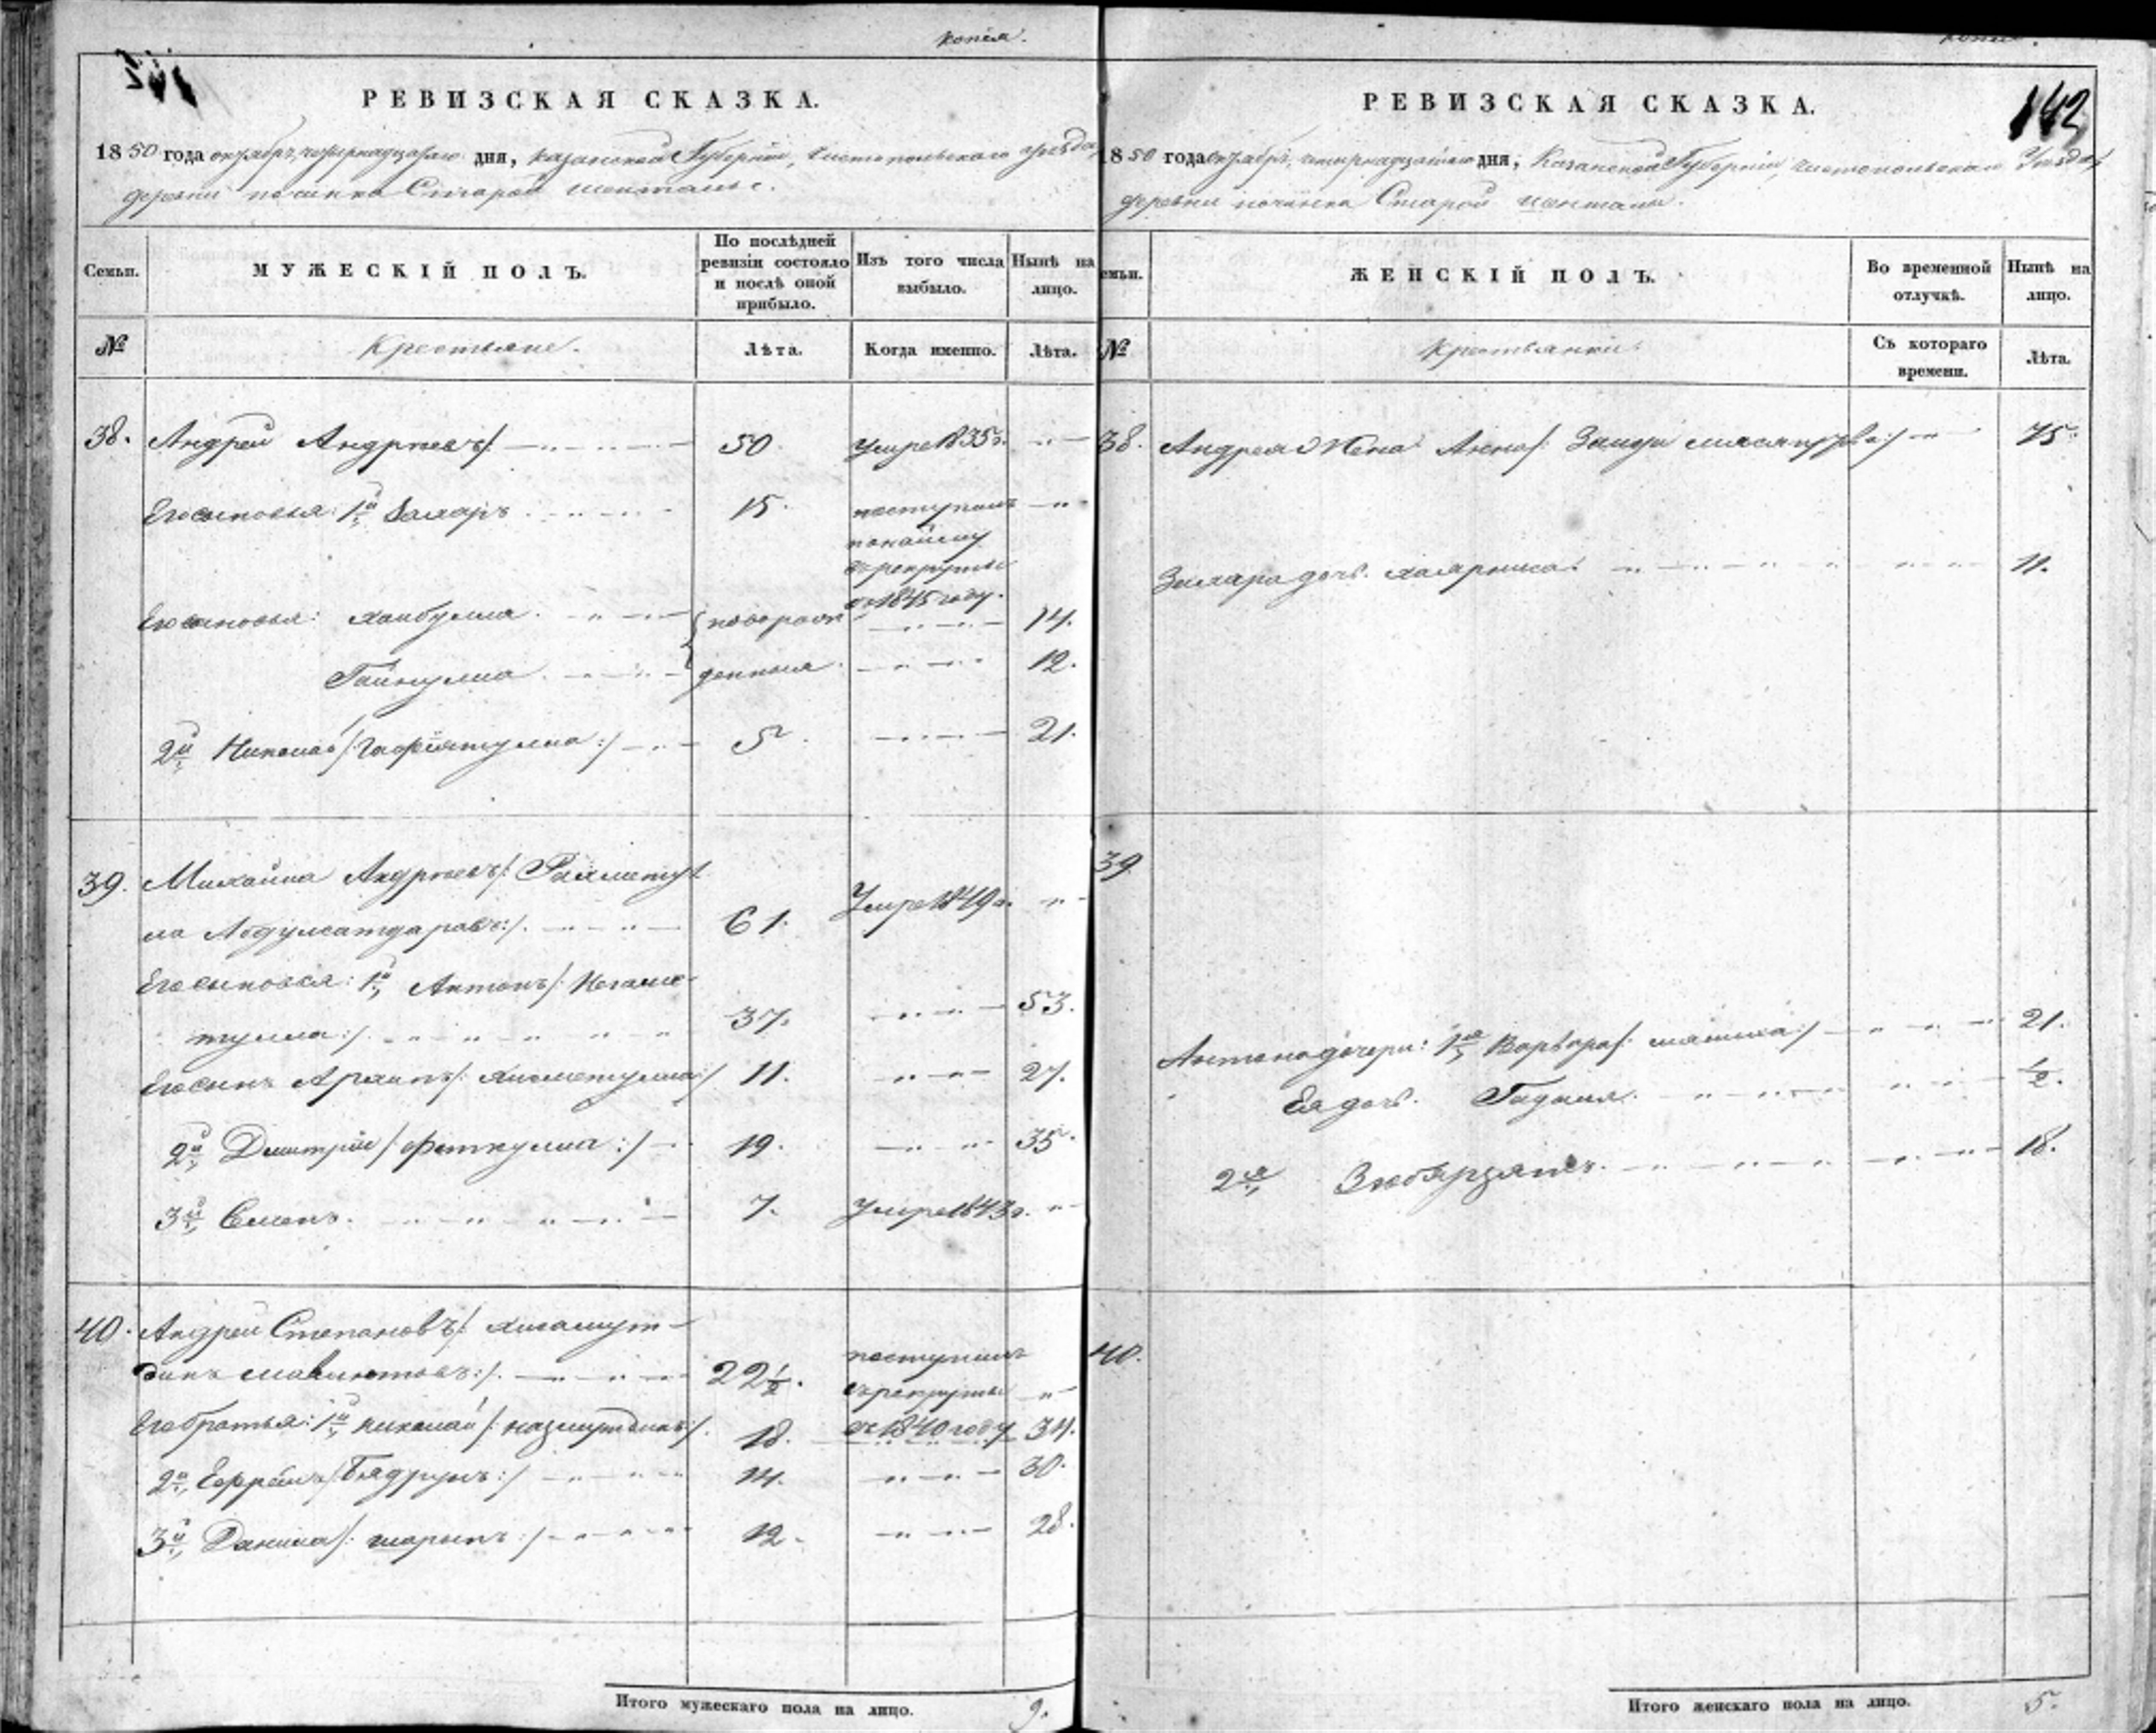 копія.
РЕВИЗСКАЯ СКАЗКА.
1850 года октября, четырнадцатаго дня, Казанской Губерніи, Чистопольскаго уѣзда
деревни починка Старой
Семьи. МУЖЕСКІЙ ПОЛЪ. По послѣдней ревизіи состояло и послѣ оной прибыло. Изъ того числа выбыло. Нынѣ на лицо.
№ Крестьяне. Лѣта. Когда именно. Лѣта.
38. Андрей Андреевъ/. 50 Умре 1835г.
Его сыновья: 1й 15. поступилъ
по найму
въ рекруты
въ 1845 году.
Его сыновья: Хайбулла новорож 14.
Гайнулла денныя 12.
2й Николай /: Гафіятулла :/ 5 21.
39. Михайла Андреевъ /: Рахметул
ла Абдулсатдаровъ :/. 61. Умре 1849г.
Его сыновья: 1й Антонъ /: Негаме-
тулла :/. 37. 53.
Его сынъ Архипъ /: Хисметулла :/ 11. 27.
2й Дмитрій /: Феткулла :/ 19. 35.
3й Семенъ. 7. Умре 1843г.
40. Андрей Степановъ /: Хисамут-
динъ :/. 22½. поступилъ
въ рекруты
въ 1840 году
Его братья: 1й Николай /: Назмутдинъ :/. 18. 34.
2й /: :/ 14. 30.
3й Данила /: Шарыпъ :/ 12. 28.
Итого мужескаго пола на лицо. 9.
копія.
142
РЕВИЗСКАЯ СКАЗКА.
1850 года октября, четырнадцатаго дня, Казанской Губерніи, Чистопольскаго Уѣзда,
деревни починка Старой
емьи. ЖЕНСКІЙ ПОЛЪ. Во временной отлучкѣ. Нынѣ на лицо.
№ Крестьянки. Съ котораго времени. Лѣта.
38. Андрея Жена Анна /: :/ 75.
дочь. 11.
39
Антона дочери: 1я Варвара /: :/ 21.
Ея дочь. ½.
2я 18.
40.
Итого женскаго пола на лицо. 5.